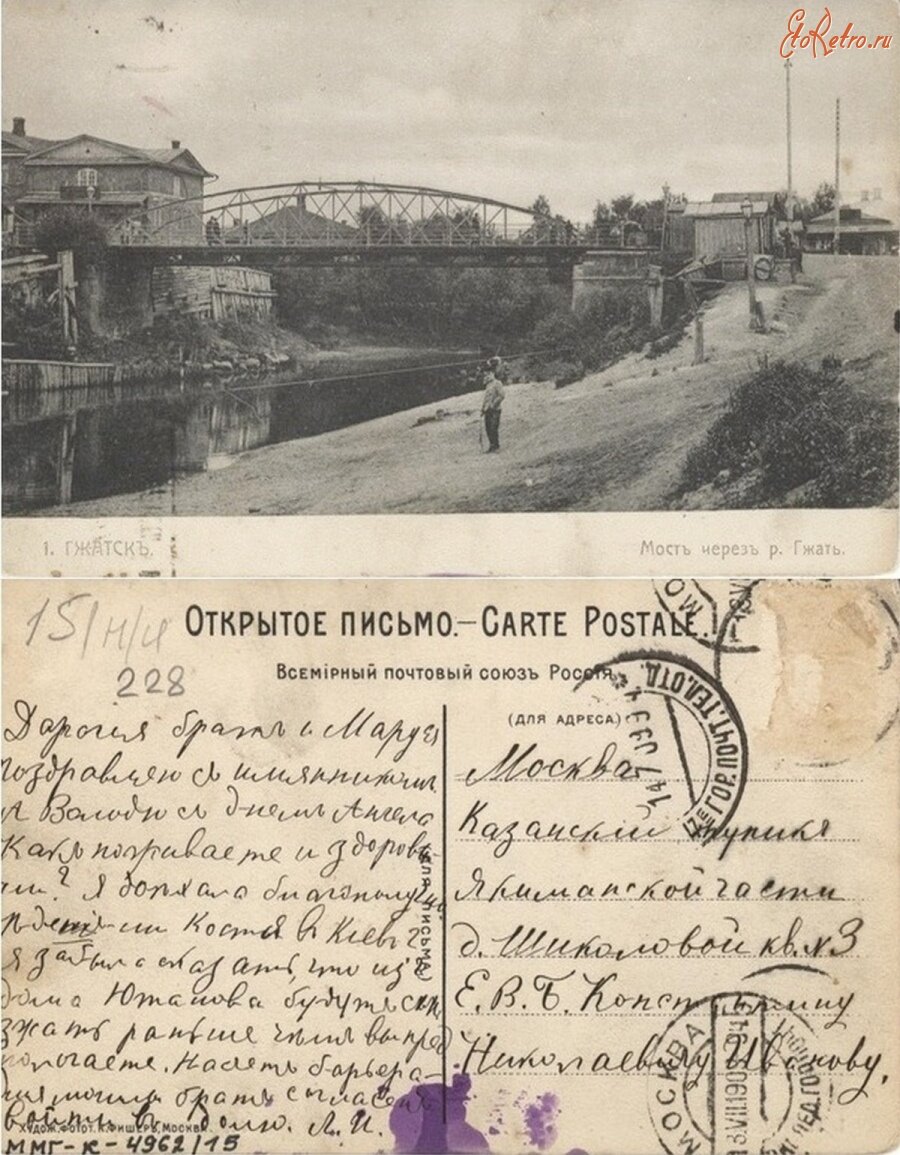 EtoRetro.ru
1. ГЖАТСКЪ.
Мостъ черезъ р. Гжать.
15/н/и
228
Открытое письмо.—Carte Postale.
Всемірный почтовый союзъ Россія.
(для адреса)
(для письма)
Дорогия братъ и Маруся
поздравляю съ имянникомъ
А Володю съ днемъ Ангела
Какъ поживаете и здоровы
ли? Я доѣхала благополучно
Костя въ Кіевъ?
Я забыла сказать, что изъ
дома будутъ съѣ
зжать раньше чѣмъ вы пред
полагаете. Насчетъ барьера
братъ согласенъ
войти въ долю. Л. И.
Москва
Казанскій тупикъ
Якиманской части
д. Шиколовой кв. № 3
Е. В. Б. Константину
Николаевичу Иванову.
ПОЧТ. ТЕЛ. ОТД.
МОСКВА
Худож. фотот. К. Фишеръ, Москва
ММГ-К-4962/15